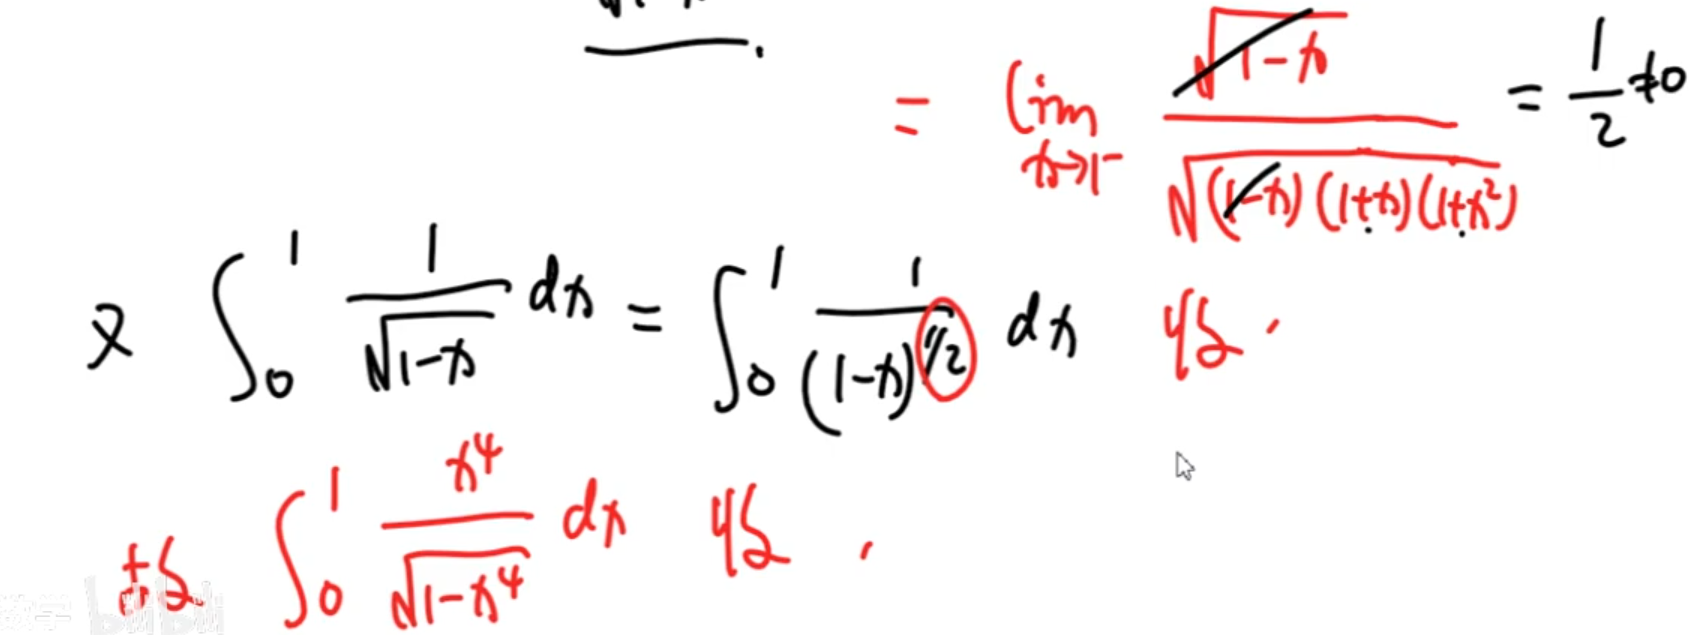 = lim_{x→1⁻} \frac{\sqrt{1-x}}{\sqrt{(1-x)(1+x)(1+x²)}} = \frac{1}{2} ≠0
又 ∫_0^1 \frac{1}{\sqrt{1-x}} dx = ∫_0^1 \frac{1}{(1-x)^{1/2}} dx 收.
故 ∫_0^1 \frac{x⁴}{\sqrt{1-x⁴}} dx 收.
数学 bilibili